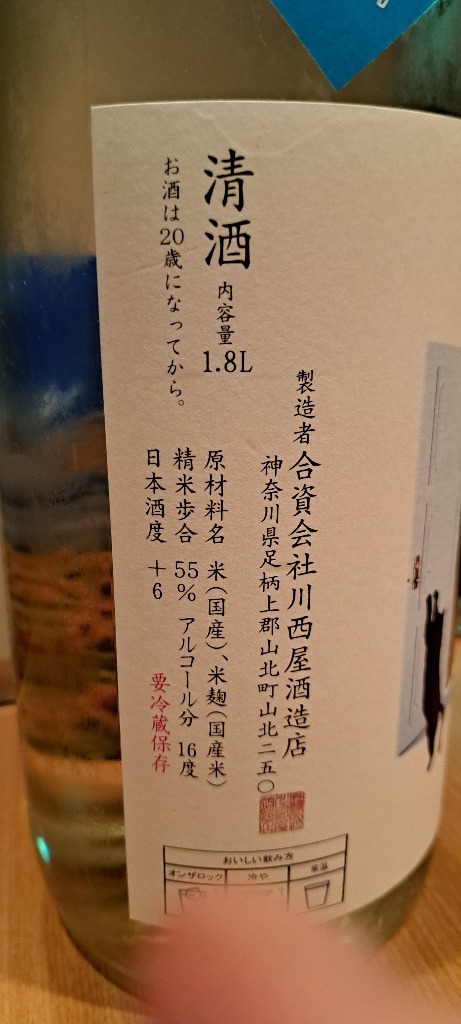 製造者 合資会社川西屋酒造店
神奈川県足柄上郡山北町山北二五〇
清酒 内容量 1.8L
お酒は20歳になってから。
原材料名 米(国産)、米麹(国産米)
精米歩合 55% アルコール分 16度
日本酒度 +6
要冷蔵保存
おいしい飲み方
オンザロック 冷や 常温